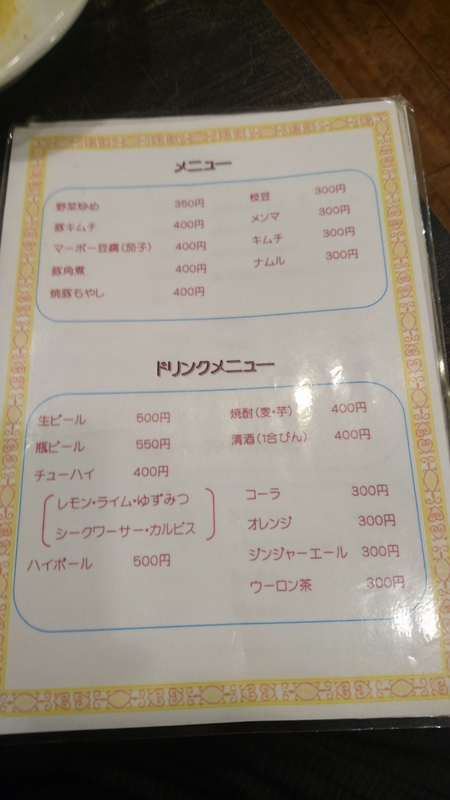 メニュー
野菜炒め 350円
豚キムチ 400円
マーボー豆腐(茄子) 400円
豚角煮 400円
焼豚もやし 400円
枝豆 300円
メンマ 300円
キムチ 300円
ナムル 300円
ドリンクメニュー
生ビール 500円
瓶ビール 550円
チューハイ 400円
レモン・ライム・ゆずみつ
シークワーサー・カルピス
ハイボール 500円
焼酎(麦・芋) 400円
清酒(1合びん) 400円
コーラ 300円
オレンジ 300円
ジンジャーエール 300円
ウーロン茶 300円